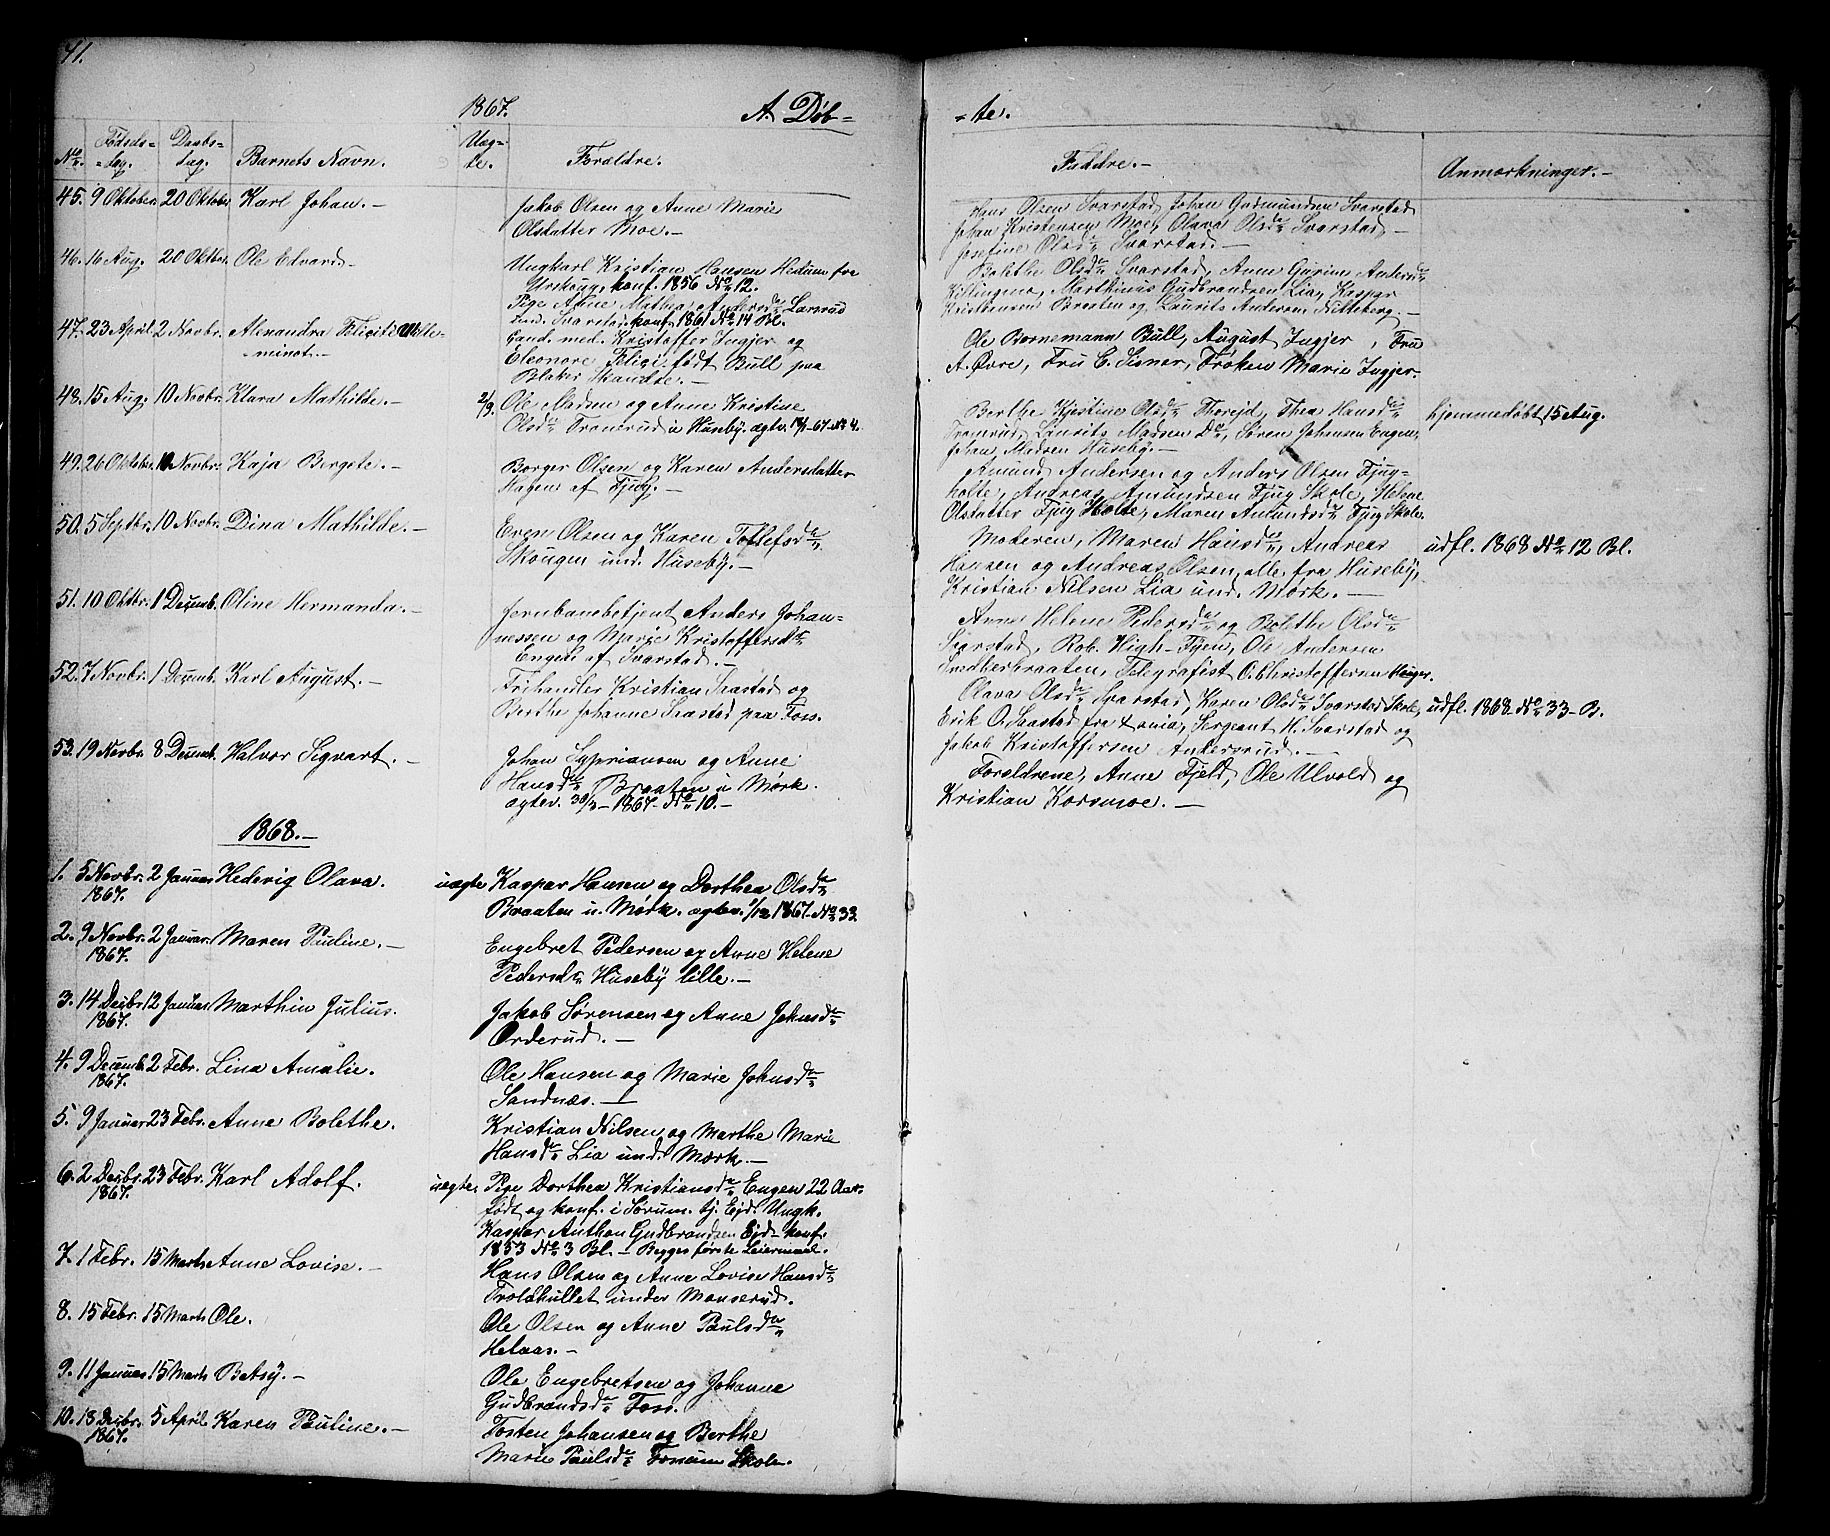 41.
1867.
A. Døb-
-te.
No. Fødsels-
-dag. Daabs-
dag. Barnets Navn. Uæg-
te. Forældre. Faddre. Anmærkninger.
45. 9 Oktober. 20 Oktober Karl Johan.
Jakob Olsen og Anne Marie
Olsdatter Moe.
Hans Olsen Svarstad, Johan Gudmundsen Svarstad
Johan Kristensen Moe, Olava Olsd. Svarstad
Josefine Olsd. Svarstad.
46. 16 Aug. 20 Oktbr. Ole Edvard
Ungkarl Kristian Hansen Hedum fra
Urskoug, konf. 1856 No. 12.
Pige Anne Mathea Andersd. Lanrud
und. Svarstad konf. 1861 No. 14 Bl.
Bolethe Olsd. Svarstad, Anne Gurine Andersd.
Killingmo, Marthinus Gudbrandsen Lia, Kaspar
Kristensen Braaten og Laurits Andersen Nitteberg.
47. 23 April. 2 Novbr. Alexandra Felicitè Wille-
-minot.
Cand. med. Kristoffer Ingjer og
Eleonore Felici født Bull paa
Blaker Skandse.
Ole Bornemann Bull, August Ingjer, Fru
A. Øvre, Fru C. Eisner, Frøken Marie Ingjer.
48. 15 Aug. 10 Novbr. Klara Mathilde.
Ole Madsen og Anne Kristine
Olsd. Tronrud u Huseby. ægtev. 67 No 4.
Berthe Kjestine Olsd. Thoreid, Thea Hansd.
Tronrud, Laurits Madsen Do, Søren Johansen Engen,
Johan Madsen Huseby.
hjemmedøbt 15 Aug.
49. 26 Oktober. 10 Novbr. Kaja Bergete.
Borger Olsen og Karen Andersdatter
Hagen af Fjug.
Amund Andersen og Anders Olsen Fjug-
holte, Andreas Amundsen Fjug Skole, Helene
Olsdatter Fjug Holte, Maren Amundsd. Fjug Skole.
50. 5 Septbr. 10 Novbr. Dina Mathilde.
Even Olsen og Karen Tollefsd.
Skougen und. Huseby.
Moderen, Maren Hansd., Andreas
Hansen og Andreas Olsen, alle fra Huseby,
Kristian Nilsen Lia und. Mørk.
udfl. 1868 No. 12 Bl.
51. 10 Oktbr. 1 Decemb. Oline Hermanda.
Jernbanebetjent Anders Johan-
nessen og Marie Kristoffersd.
Engebl af Svarstad.
Anne Helene Pedersd. og Bolethe Olsd.
Svarstad, Rob. High-Fyen, Ole Andersen
Svedberbraaten, Telegrafist O. Christoffersen Hauger.
52. 7 Novbr. 1 Decemb. Karl August.
Frihandler Kristian Saastad og
Berthe Johanne Saastad paa Foss.
Olava Olsd. Svarstad, Karen Olsd. Svarstad Skole,
Erik O. Saastad fra , Sergeant H. Svarstad og
Jakob Kristoffersen Andersrud.
udfl. 1868 No. 33 B.
53. 19 Novbr. 8 Decemb. Halvor Sigvart.
Johan Syprianson og Anne
Hansd. Braaten u Mørk.
ægtev. 30/3 1867. No. 10.
Forældrene, Anne Fjeld, Ole Ulvold og
Kristian Korsmoe.
1868.
1. 5 Novbr.
1867. 2 Januar Hedevig Olava. uægte Kaspar Hansen og Dorthea Olsd.
Braaten u. Mørk. ægtev. 1/12 1867. No. 33
2. 9 Novbr.
1867. 2 Januar. Maren Pauline.
Engebret Pedersen og Anne Helene
Pedersd. Huseby lille.
3. 14 Decbr
1867. 12 Januar Marthin Julius.
Jakob Sørensen og Anne Johnsd.
Orderud.
4. 9 Decemb.
1867. 2 Febr. Lina Amalie.
Ole Hansen og Marie Johnsd.
Sandnæs.
5. 9 Januar 23 Febr. Anne Bolethe.
Kristian Nilsen og Marthe Marie
Hansd. Lia und. Mørk.
6. 2 Decbr.
1867. 23 Febr. Karl Adolf. uægte. Pige Dorthea Kristiansd. Engen 22 Aar.
født og konf. i Sørum. bj. Ejd. Ungk.
Kaspar Anthon Gudbrandsen Ejd. konf.
1853 No. 3 Bl. Begges første Leiermaal.
7. 1 Febr. 15 Marts Anne Lovise.
Hans Olsen og Anne Lovise Hansd.
Troldhullet under Monserud.
8. 15 Febr. 15 Marts Ole.
Ole Olsen og Anne Paulsd.
Helaas.
9. 11 Januar 15 Marts Betsy.
Ole Engebretsen og Johanne
Gudbrandsd. Foss.
10. 18 Decbr.
1867. 5 April. Karen Pauline.
Tosten Johansen og Berthe
Marie Paulsd. Fossum Skole.